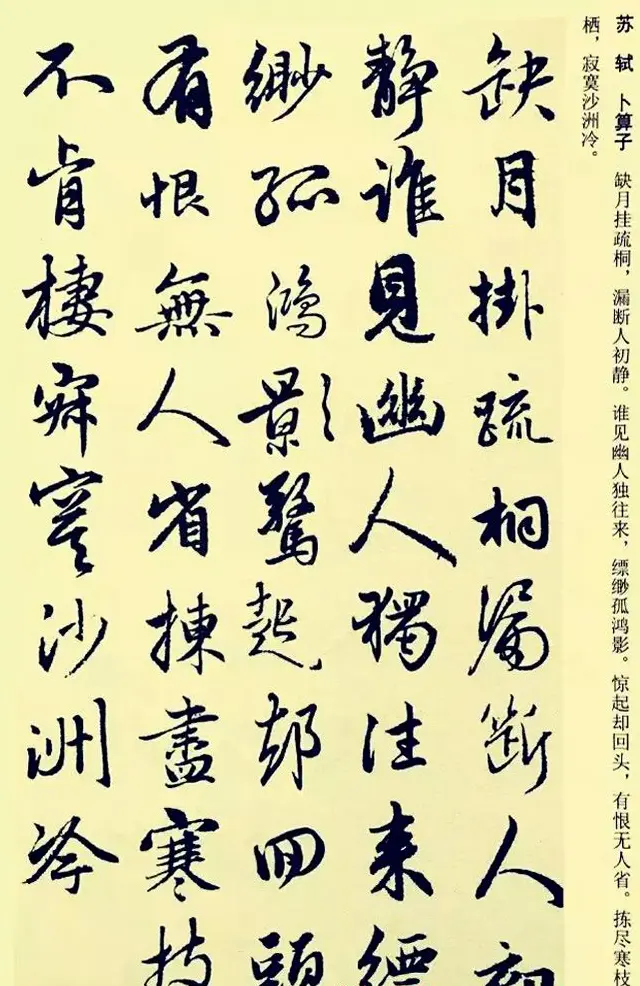 苏轼 卜算子 缺月挂疏桐，漏断人初静。谁见幽人独往来，缥缈孤鸿影。惊起却回头，有恨无人省。拣尽寒枝
栖，寂寞沙洲冷。
缺月掛疏桐漏断人初
静誰見幽人獨往来縹
緲孤鴻影驚起却回頭
有恨無人省揀盡寒枝
不肯棲寂寞沙洲冷